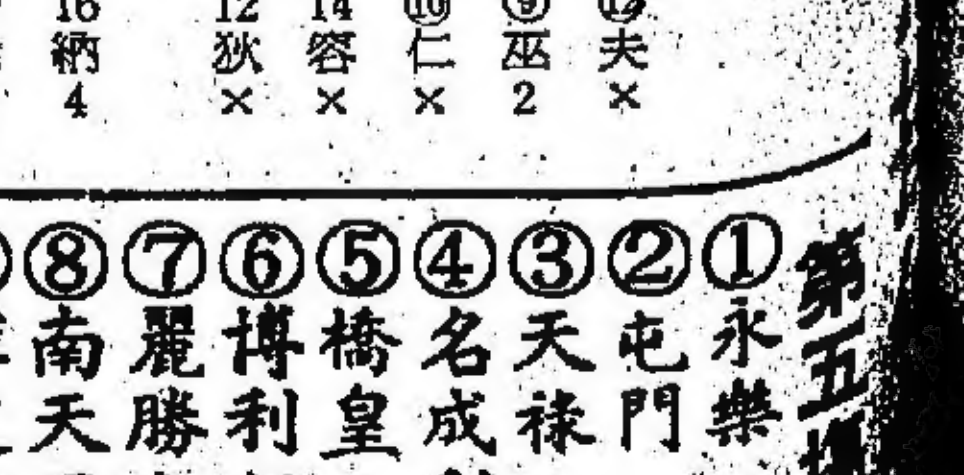 ⑫夫×
⑨巫2
⑩仁×
14容×
12狄×
16納4
第五
①永樂
②屯門
③天祿
④名成
⑤橋皇
⑥博利
⑦麗勝
⑧南天